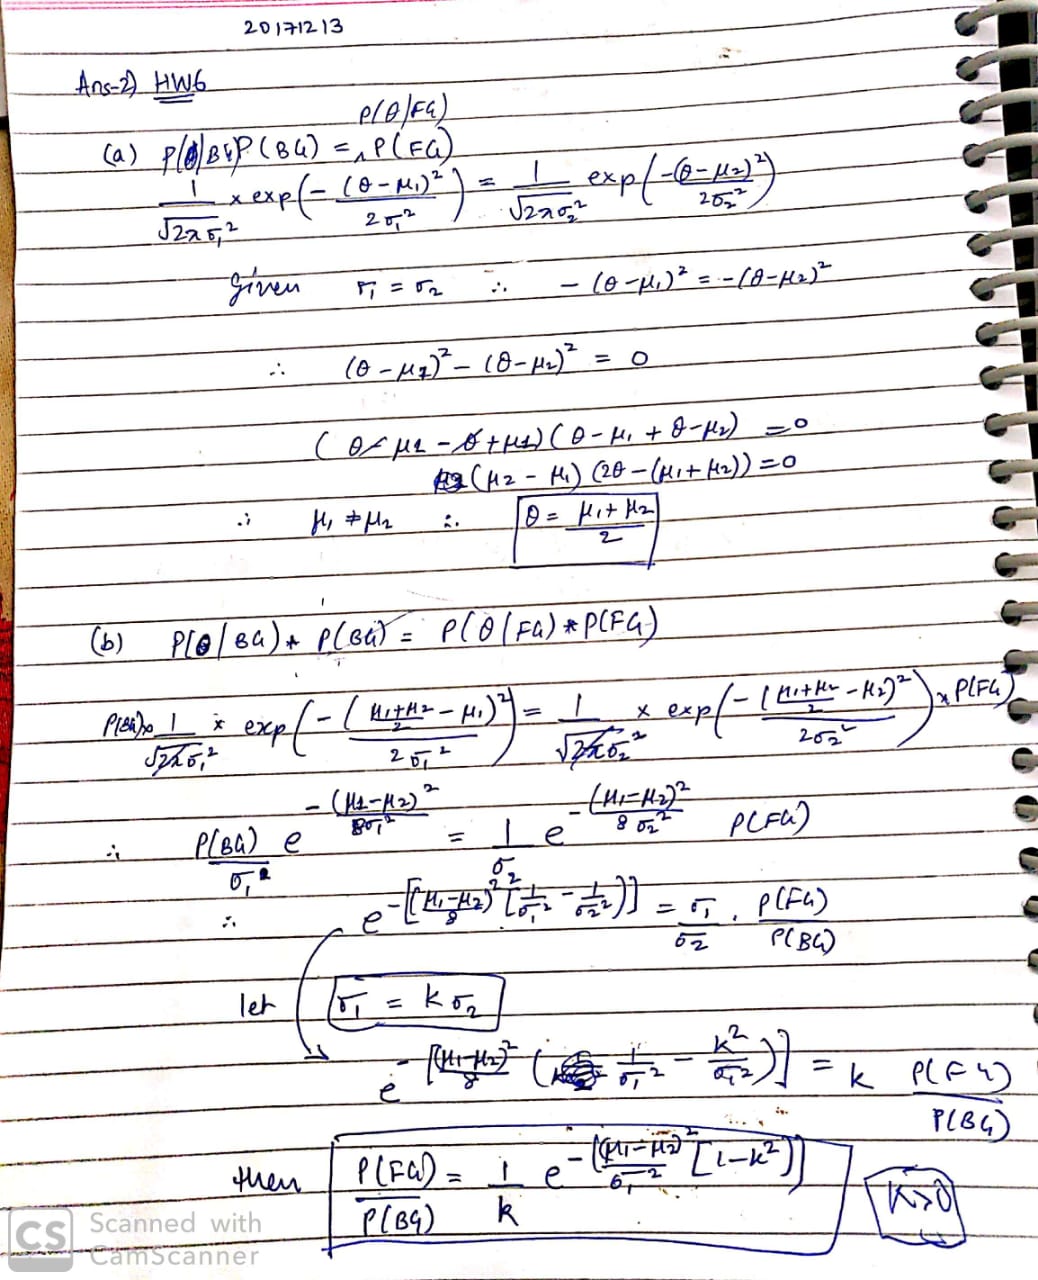 20171213
Ans-2) HW6
P(θ/FG)
(a) P(θ/BG)P(BG) = ^ P(FG)
1/√2πσ₁² × exp(-(θ-μ₁)²/2σ₁²) = 1/√2πσ₂² exp(-(θ-μ₂)²/2σ₂²)
given σ₁ = σ₂ ∴ -(θ-μ₁)² = -(θ-μ₂)²
∴ (θ-μ₁)² - (θ-μ₂)² = 0
(θ-μ₁-θ+μ₂)(θ-μ₁+θ-μ₂) = 0
(μ₂-μ₁)(2θ-(μ₁+μ₂)) = 0
∵ μ₁ ≠ μ₂ ∴ θ = μ₁+μ₂/2
(b) P(θ/BG) * P(BG) = P(θ/FG) * P(FG)
P(BG)× 1/√2πσ₁² × exp(-(μ₁+μ₂/2 - μ₁)²/2σ₁²) = 1/√2πσ₂² × exp(-(μ₁+μ₂/2 - μ₂)²/2σ₂²) × P(FG)
∴ P(BG)/σ₁ e^-(μ₁-μ₂)²/8σ₁² = 1/σ₂ e^-(μ₁-μ₂)²/8σ₂² P(FG)
∴ e^-[(μ₁-μ₂)²/8 (1/σ₁² - 1/σ₂²)] = σ₁/σ₂ . P(FG)/P(BG)
let σ₁ = kσ₂
e^-[(μ₁-μ₂)²/8 (1/σ₁² - k²/σ₁²)] = k P(FG)/P(BG)
then P(FG)/P(BG) = 1/k e^-[(μ₁-μ₂)²/σ₁² [1-k²]] k>0
CS Scanned with
CamScanner